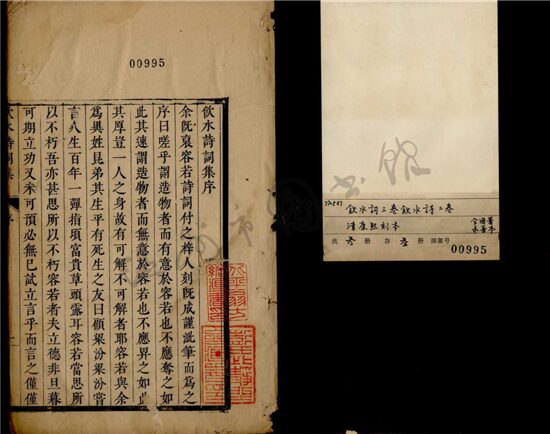 00995
飲水詩詞集序
余既裒容若詩詞付之梓人刻既成謹泚筆而爲之
序曰嗟乎謂造物者而有意於容若也不應奪之如
此其速謂造物者而無意於容若也不應畀之如此
其厚豈一人之身故有可解不可解者耶容若與余
爲異姓昆弟其生平有死生之友曰顧梁汾梁汾嘗
言人生百年一彈指頃富貴草頭露耳容若當思所
以不朽吾亦甚思所以不朽容若者夫立德非旦暮
可期立功又未可預必無已試立言乎而言之僅僅
飲水詩詞集 序
飲水詞二卷飲水詩二卷
清康熙刻本
共 册 存 册 排架号
00995